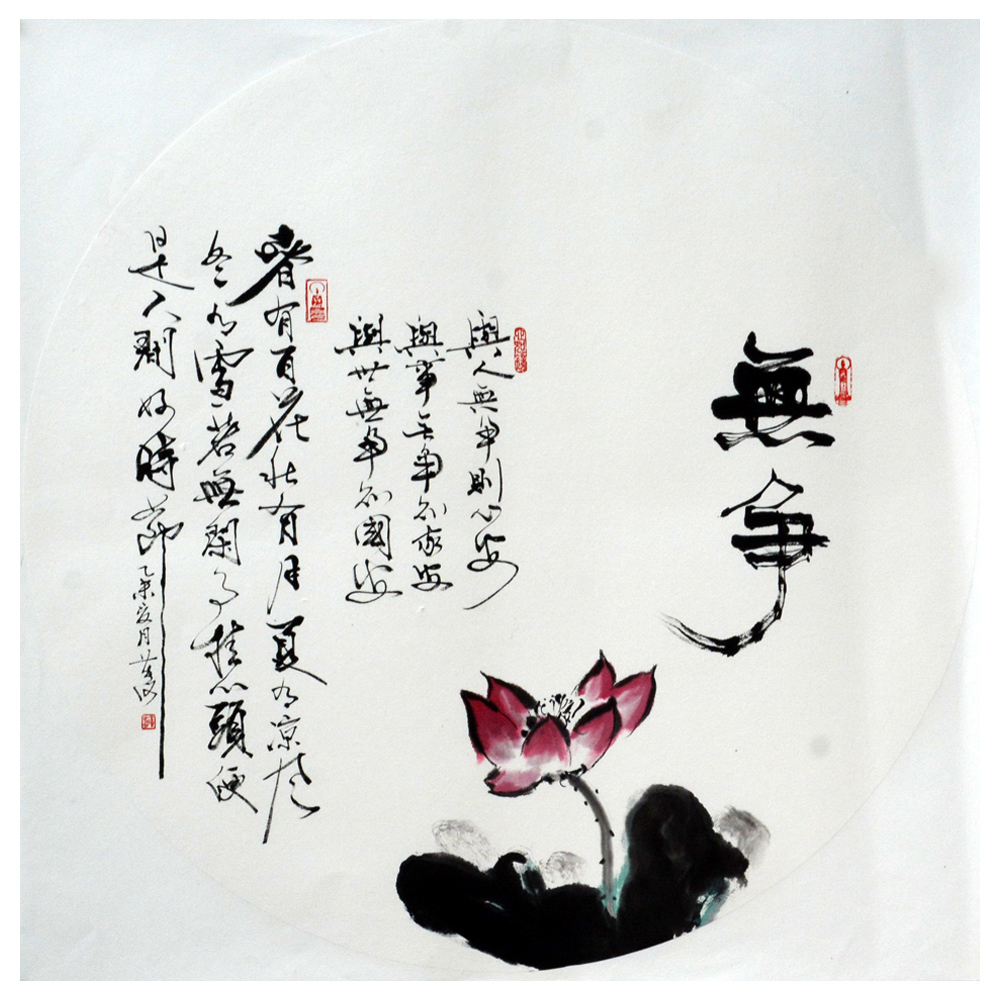 無争
與人無争則心安
與事无争則家安
與世無争則國安
春有百花秋有月夏有凉風
冬有雪若無閑事挂心頭便
是人間好時節
乙未夏月